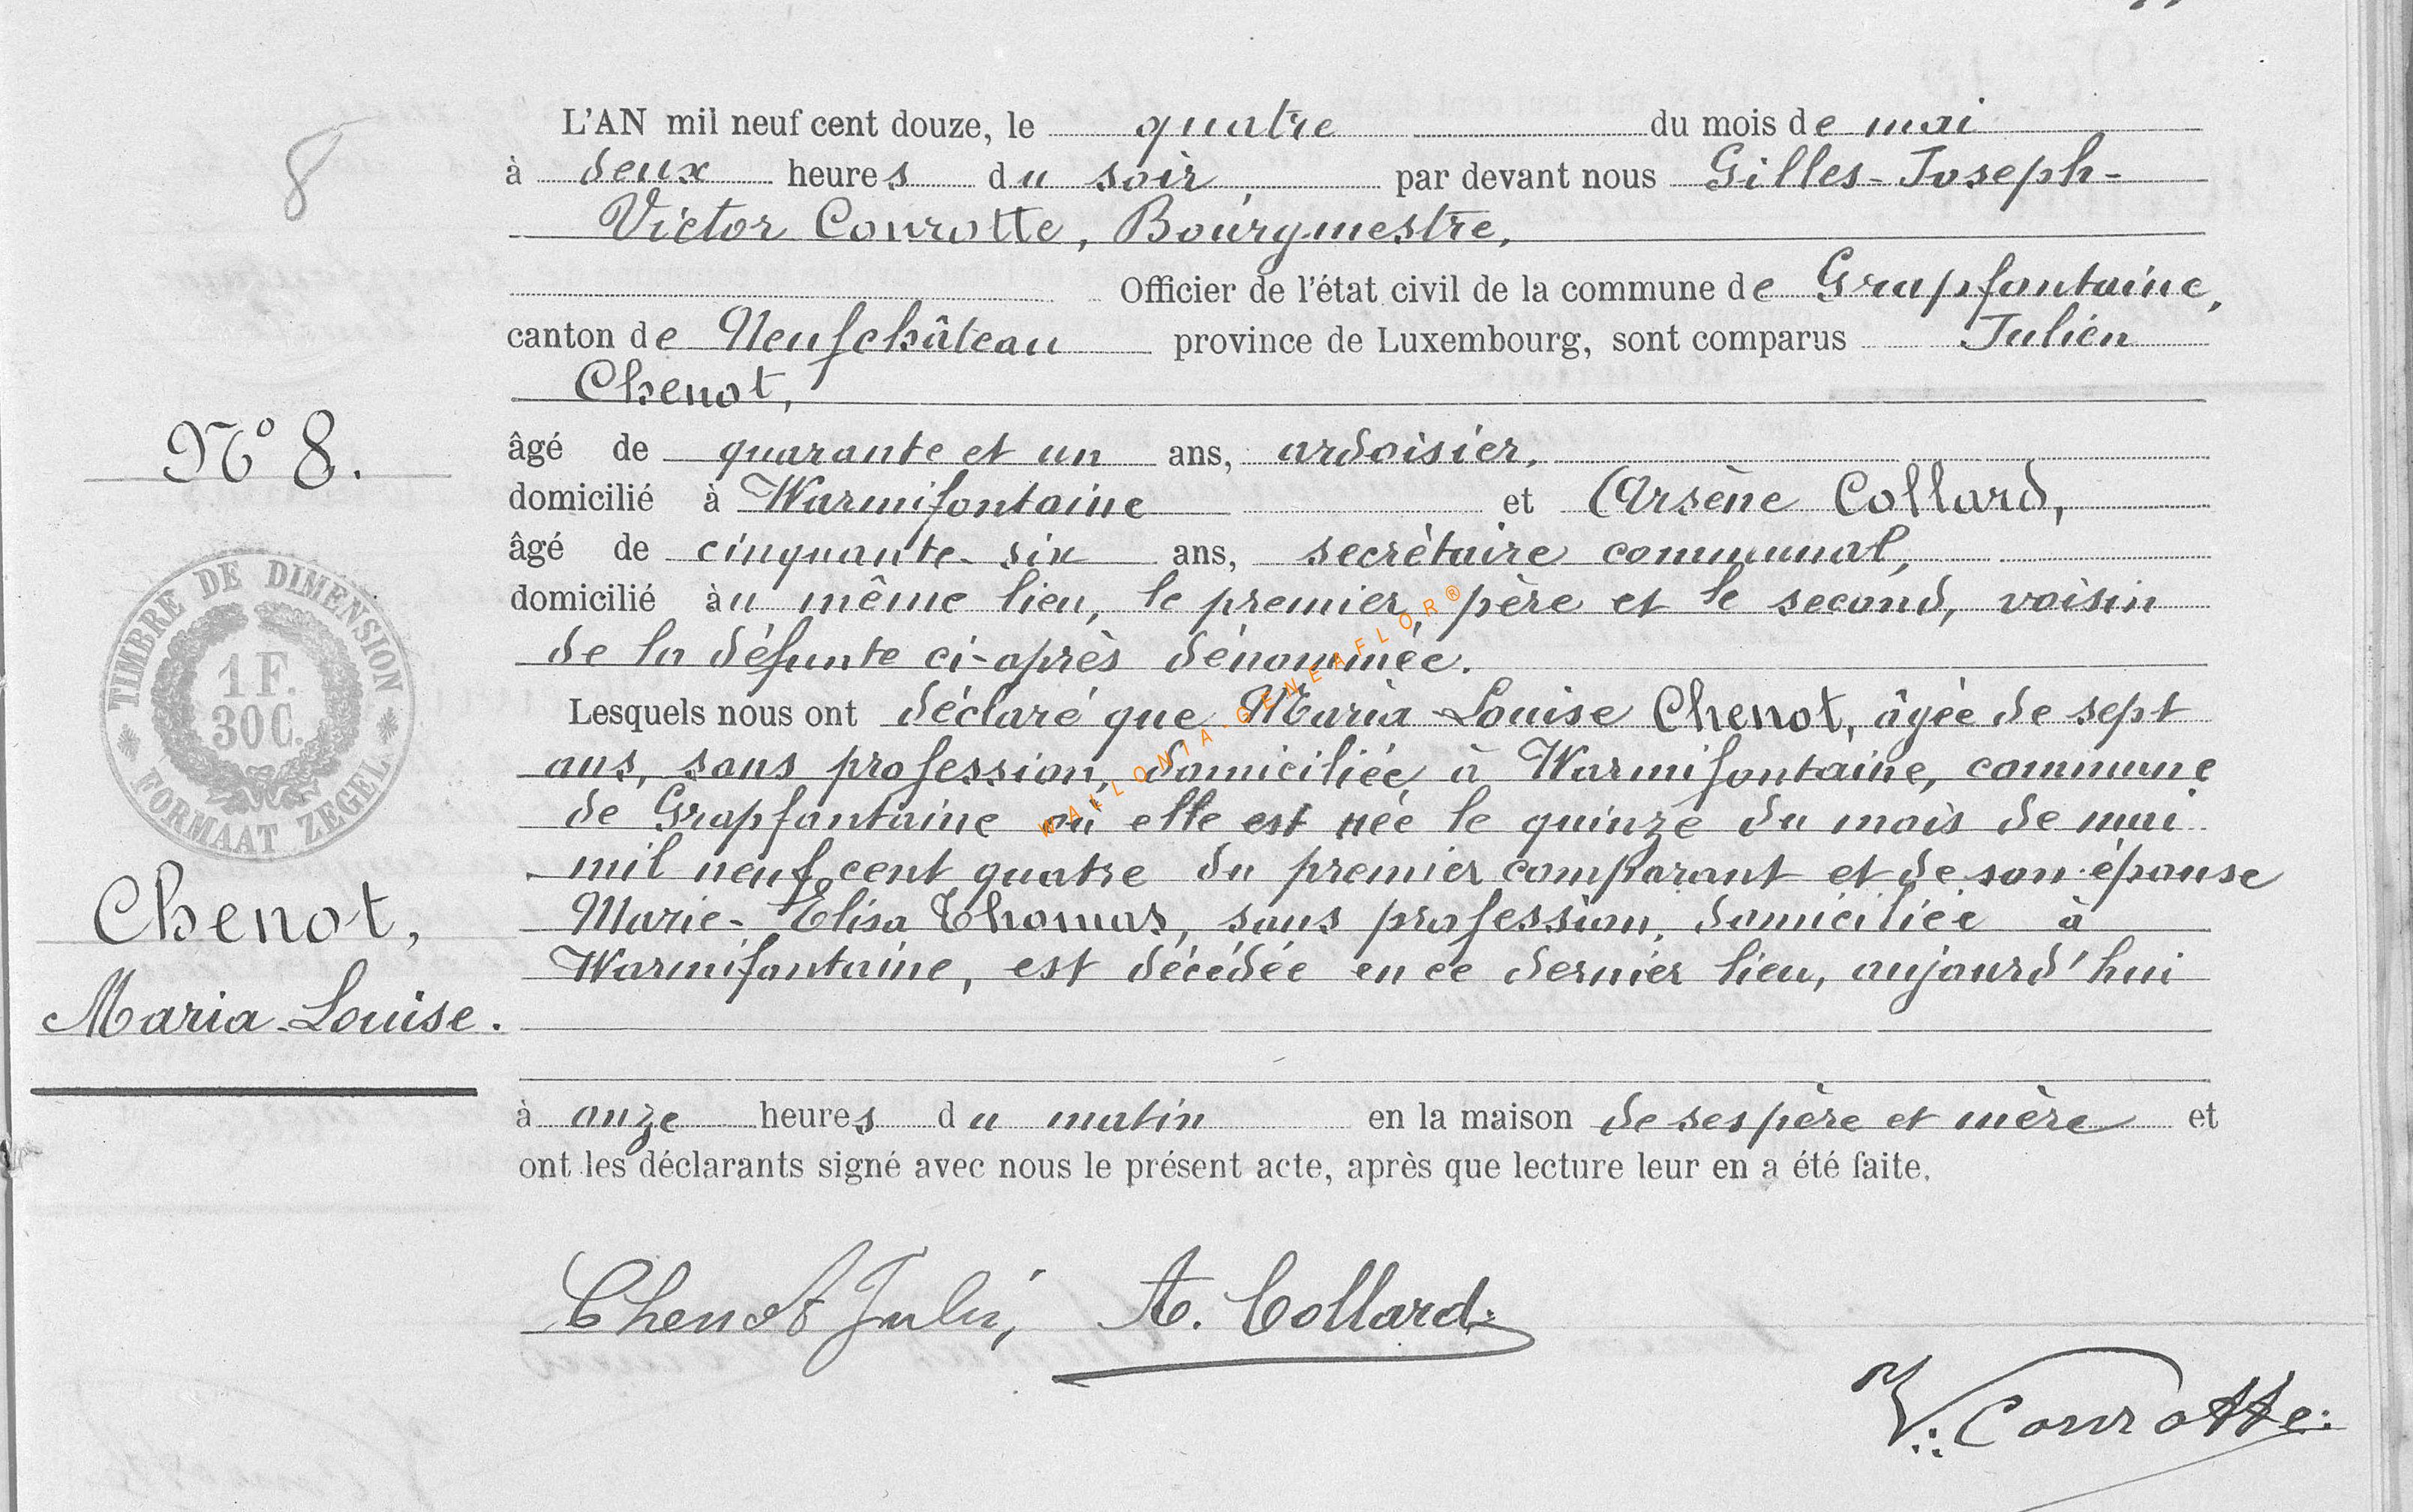 8
L'AN mil neuf cent douze, le quatre du mois de mai
à deux heures du soir, par devant nous Gilles-Joseph-
Victor Conrotte, Bourgmestre,
Officier de l'état civil de la commune de Grapfontaine,
canton de Neufchâteau province de Luxembourg, sont comparus Julien
Chenot,
âgé de quarante et un ans, ardoisier,
domicilié à Warmifontaine et Arsène Collard,
âgé de cinquante-six ans, secrétaire communal,
domicilié au même lieu, le premier, père et le second, voisin
de la défunte ci-après dénommée.
Lesquels nous ont déclaré que Maria Louise Chenot, âgée de sept
ans, sans profession, domiciliée à Warmifontaine, commune
de Grapfontaine où elle est née le quinze du mois de mai
mil neuf cent quatre du premier comparant et de son épouse
Marie-Elisa Thomas, sans profession, domiciliée à
Warmifontaine, est décédée en ce dernier lieu, aujourd'hui
à onze heures du matin en la maison de ses père et mère et
ont les déclarants signé avec nous le présent acte, après que lecture leur en a été faite.
N° 8.
TIMBRE DE DIMENSION
1 F.
30 C.
FORMAAT ZEGEL
Chenot,
Maria-Louise.
WALLONIA-GENEAFLOR®
Chenot Julien, A. Collard
V. Conrotte